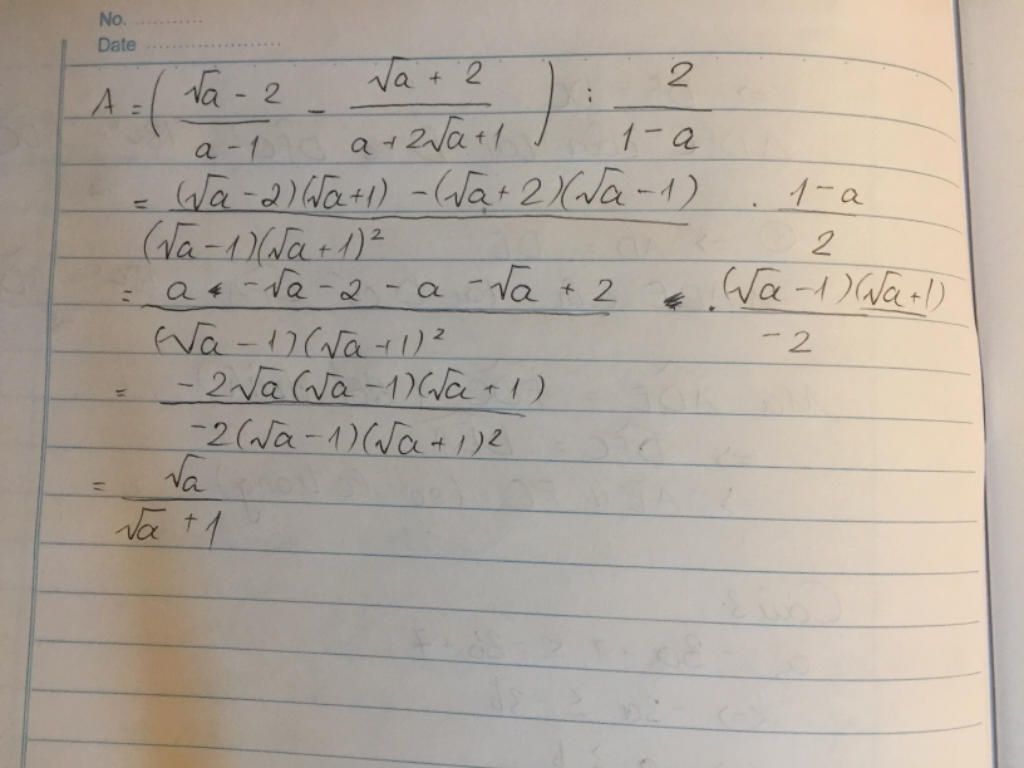 No. ...........
Date ......................
A = ( (√a - 2)/(a - 1) - (√a + 2)/(a + 2√a + 1) ) : 2/(1 - a)
= ((√a - 2)(√a + 1) - (√a + 2)(√a - 1))/((√a - 1)(√a + 1)²) . (1 - a)/2
= (a - √a - 2 - a - √a + 2)/((√a - 1)(√a + 1)²) . ((√a - 1)(√a + 1))/(-2)
= (-2√a(√a - 1)(√a + 1))/(-2(√a - 1)(√a + 1)²)
= √a/(√a + 1)